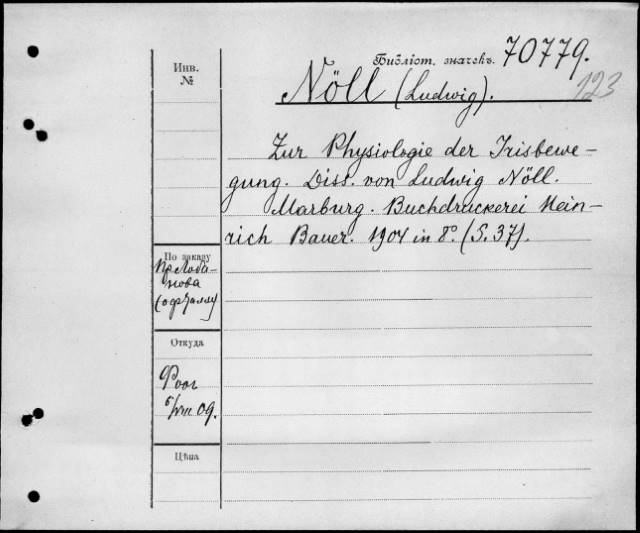 Инв.
№
Библіот. значекъ. 70779.
123
Nöll (Ludwig).
Zur Physiologie der Irisbewe-
gung. Diss. von Ludwig Nöll.
Marburg. Buchdruckerei Hein-
rich Bauer. 1904 in 8°. (S. 37).
По заказу
Пр. Лоба-
нова
Откуда
Роог
09.
Цѣна